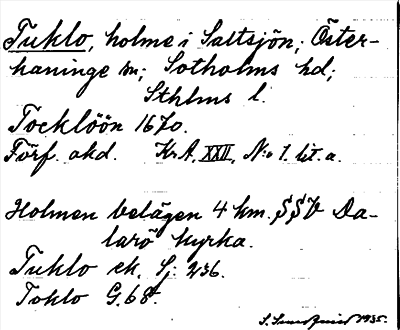 Tuklo, holme i Saltsjön; Öster-
haninge sn; Sotholms hd;
Sthlms l.
Tocklöön 1670.
Förf. okd. Kr.A. XXII, N:o 1. lit. a.
Holmen belägen 4 km. SSV Da-
larö kyrka.
Tuklo ek. S; 236.
Toklo G. 68.
1935.